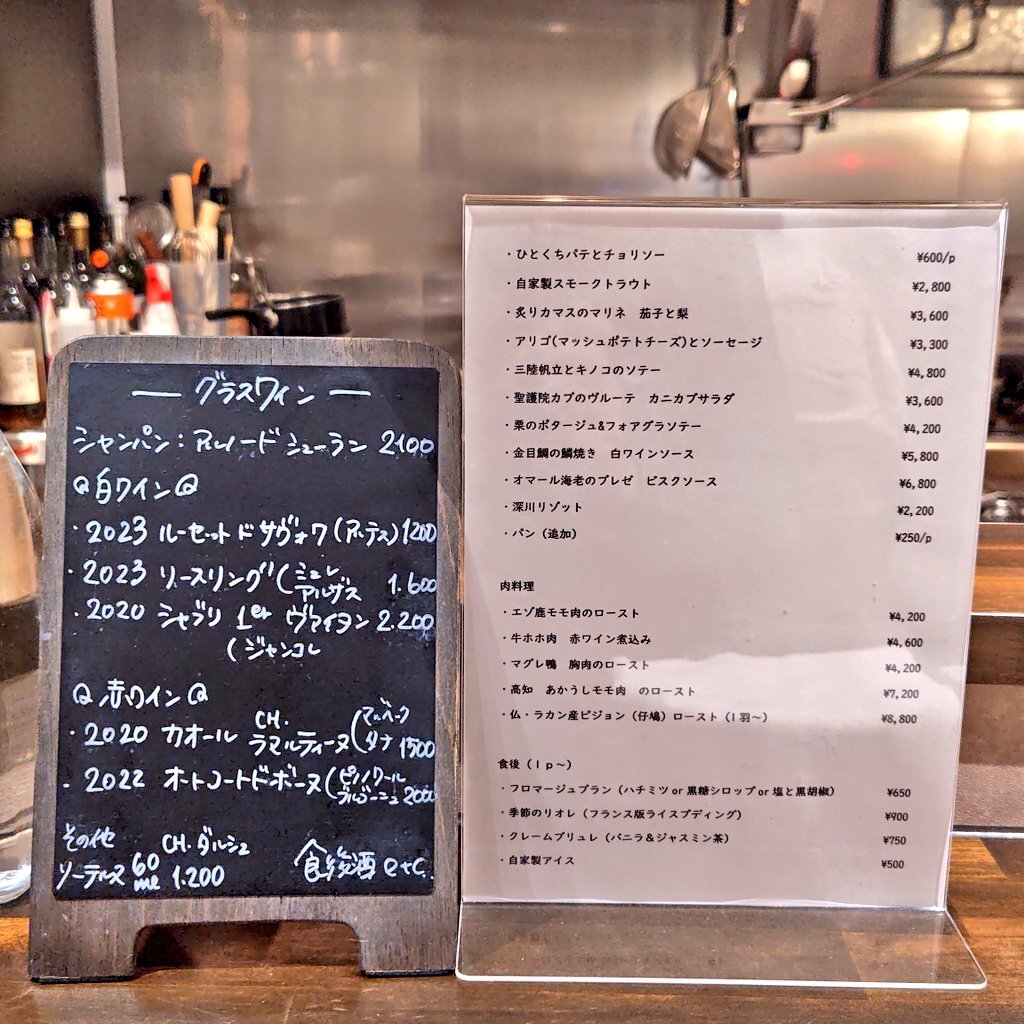 グラスワイン
シャンパン：アルノード シューラン 2100
白ワイン
・2023 ルーセットドサヴォワ(アルテス) 1200
・2023 リースリング(ミュレ アルザス 1.600
・2020 シャブリ 1er ヴァイヨン 2.200
(ジャンコレ
赤ワイン
・2020 カオール CH. ラマルティーヌ(マルベーク タナ 1500
・2022 オートコートドボーヌ(ピノノワール ブルゴーニュ 2000
その他
ソーテルヌ 60ml CH.ダルシュ 1.200
食後酒 etc.
・ひとくちパテとチョリソー ¥600/p
・自家製スモークトラウト ¥2,800
・炙りカマスのマリネ 茄子と梨 ¥3,600
・アリゴ(マッシュポテトチーズ)とソーセージ ¥3,300
・三陸帆立とキノコのソテー ¥4,800
・聖護院カブのヴルーテ カニカブサラダ ¥3,600
・栗のポタージュ&フォアグラソテー ¥4,200
・金目鯛の鱗焼き 白ワインソース ¥5,800
・オマール海老のブレゼ ビスクソース ¥6,800
・深川リゾット ¥2,200
・パン（追加） ¥250/p
肉料理
・エゾ鹿モモ肉のロースト ¥4,200
・牛ホホ肉 赤ワイン煮込み ¥4,600
・マグレ鴨 胸肉のロースト ¥4,200
・高知 あかうしモモ肉 のロースト ¥7,200
・仏・ラカン産ピジョン（仔鳩）ロースト（1羽～） ¥8,800
食後（1p～）
・フロマージュブラン（ハチミツ or 黒糖シロップ or 塩と黒胡椒） ¥650
・季節のリオレ（フランス版ライスプディング） ¥900
・クレームブリュレ（バニラ＆ジャスミン茶） ¥750
・自家製アイス ¥500